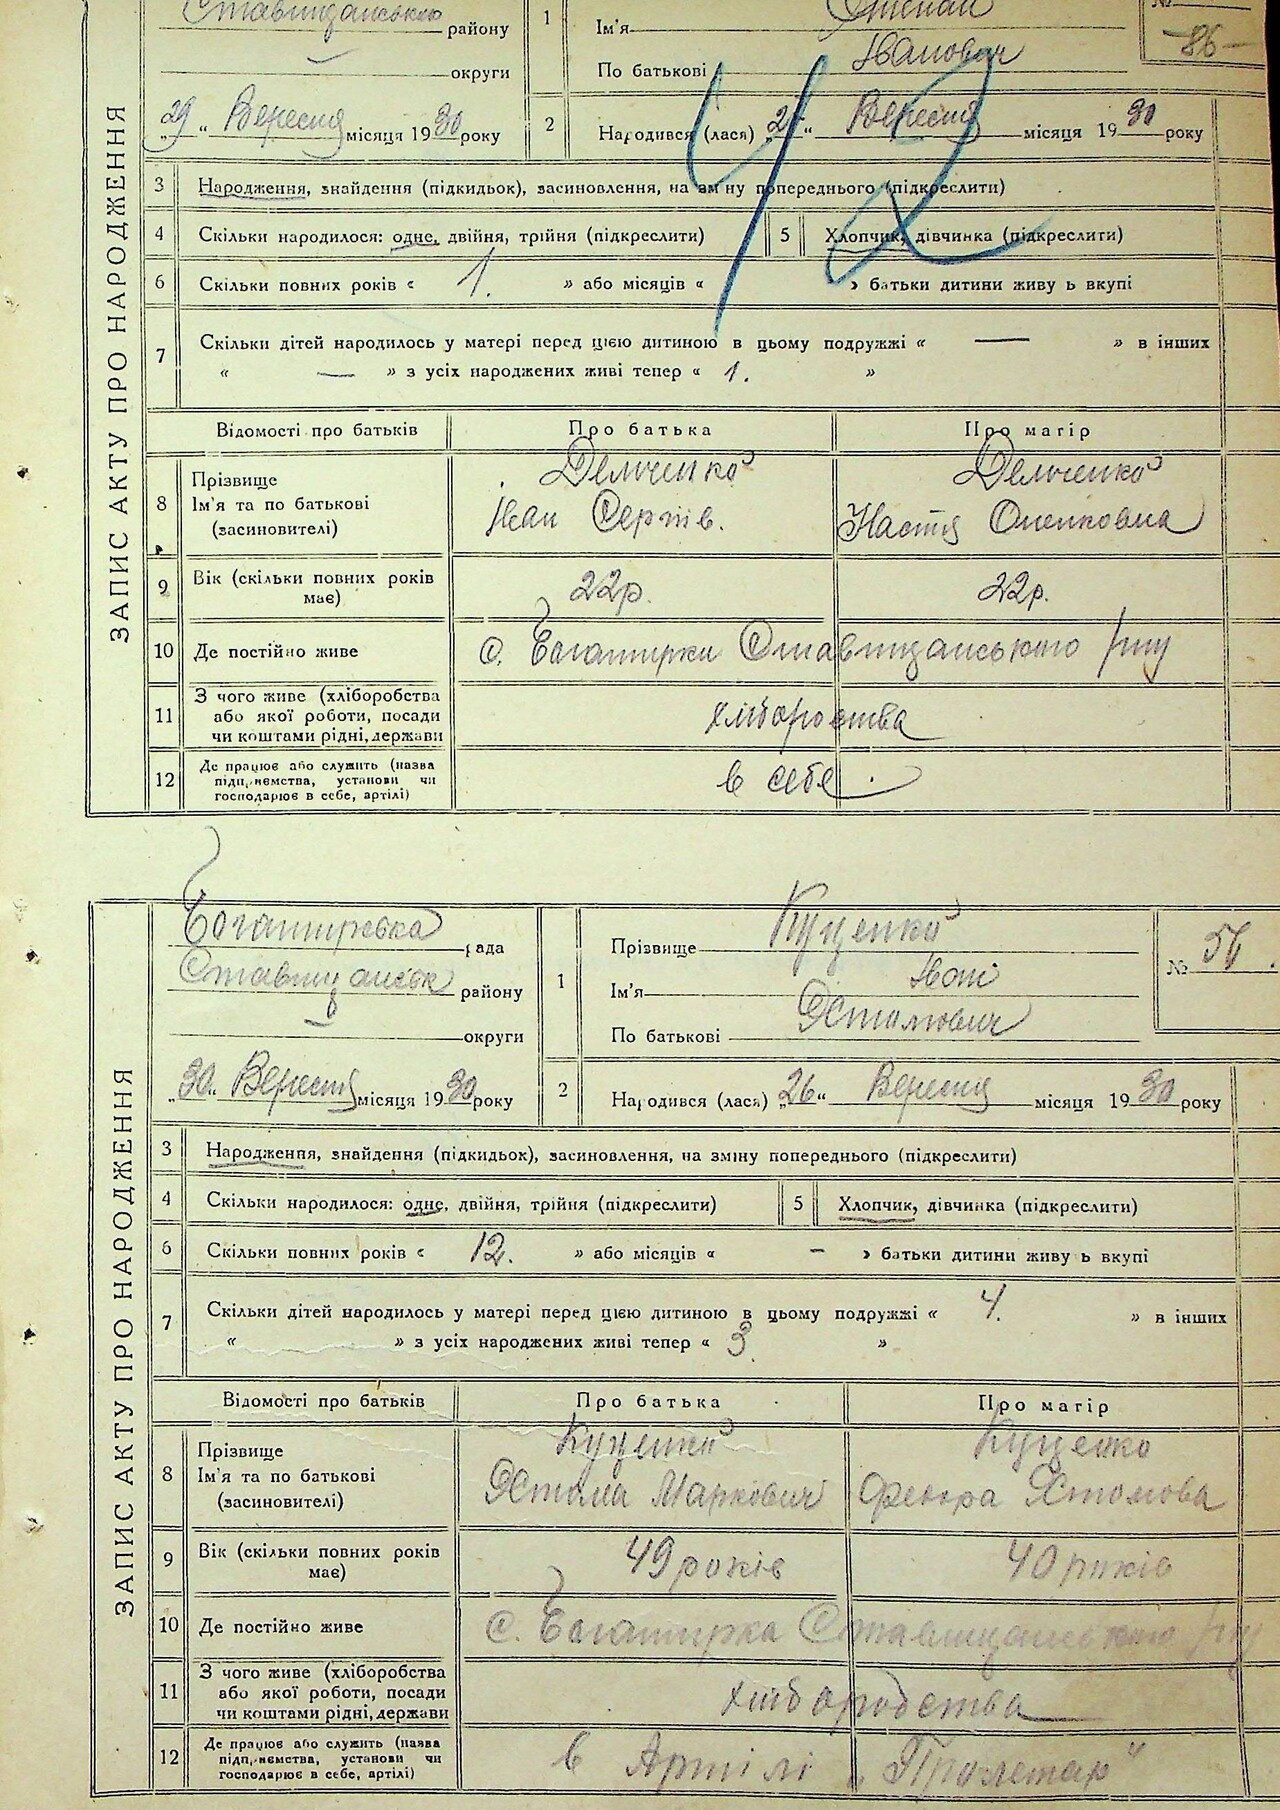 Ставищанського району
Ім'я Степан
№ 86
округи
По батькові Іванович
"29" Вересня місяця 1930 року
2 Народився (лася) Вересня місяця 1930 року
ЗАПИС АКТУ ПРО НАРОДЖЕННЯ
3 Народження, знайдення (підкидьок), засиновлення, на зміну попереднього (підкреслити)
4 Скільки народилося: одне, двійня, трійня (підкреслити) 5 Хлопчик, дівчинка (підкреслити)
6 Скільки повних років « 1. » або місяців « » батьки дитини живу ь вкупі
7 Скільки дітей народилось у матері перед цією дитиною в цьому подружжі « — » в інших
« — » з усіх народжених живі тепер « 1. »
Відомості про батьків Про батька Про матір
8 Прізвище
Ім'я та по батькові
(засиновителі)
Іван Сергіїв. Настя
9 Вік (скільки повних років має) 22р. 22р.
10 Де постійно живе с. Багатирки Ставищанського р-ну
11 З чого живе (хліборобства
або якої роботи, посади
чи коштами рідні, держави
хліборобства
12 Де працює або служить (назва
підприємства, установи чи
господарює в себе, артілі)
в себе.
Богатирвка рада
1 Прізвище Куценко
№ 56.
Ставищанськ району
Ім'я Івані
— округи
По батькові Ястомович
"30" Вересня місяця 1930 року
2 Народився (лася) "26" Вересня місяця 1930 року
ЗАПИС АКТУ ПРО НАРОДЖЕННЯ
3 Народження, знайдення (підкидьок), засиновлення, на зміну попереднього (підкреслити)
4 Скільки народилося: одне, двійня, трійня (підкреслити) 5 Хлопчик, дівчинка (підкреслити)
6 Скільки повних років « 12. » або місяців « - » батьки дитини живу ь вкупі
7 Скільки дітей народилось у матері перед цією дитиною в цьому подружжі « 4. » в інших
« » з усіх народжених живі тепер « 3 »
Відомості про батьків Про батька Про матір
8 Прізвище Куценко Куценко
Ім'я та по батькові Ястома Маркович Федора Ястомова
(засиновителі)
9 Вік (скільки повних років має) 49 років 40 років
10 Де постійно живе с. Багатирка Ставищанського р-ну
11 З чого живе (хліборобства
або якої роботи, посади
чи коштами рідні, держави
хліборобства
12 Де працює або служить (назва
підприємства, установи чи
господарює в себе, артілі)
в Артілі „Пролетар"